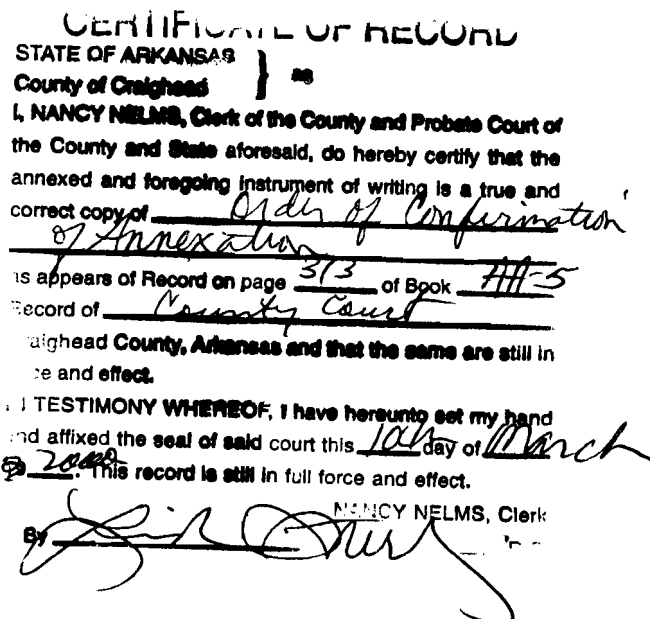 CERTIFICATE OF RECORD
STATE OF ARKANSAS
County of Craighead } ss
I, NANCY NELMS, Clerk of the County and Probate Court of
the County and State aforesaid, do hereby certify that the
annexed and foregoing instrument of writing is a true and
correct copy of Order of Confirmation
of Annexation
as appears of Record on page 313 of Book AA-5
Record of County Court
raighead County, Arkansas and that the same are still in
ce and effect.
N TESTIMONY WHEREOF, I have hereunto set my hand
and affixed the seal of said court this 10th day of March
2000. This record is still in full force and effect.
NANCY NELMS, Clerk
By